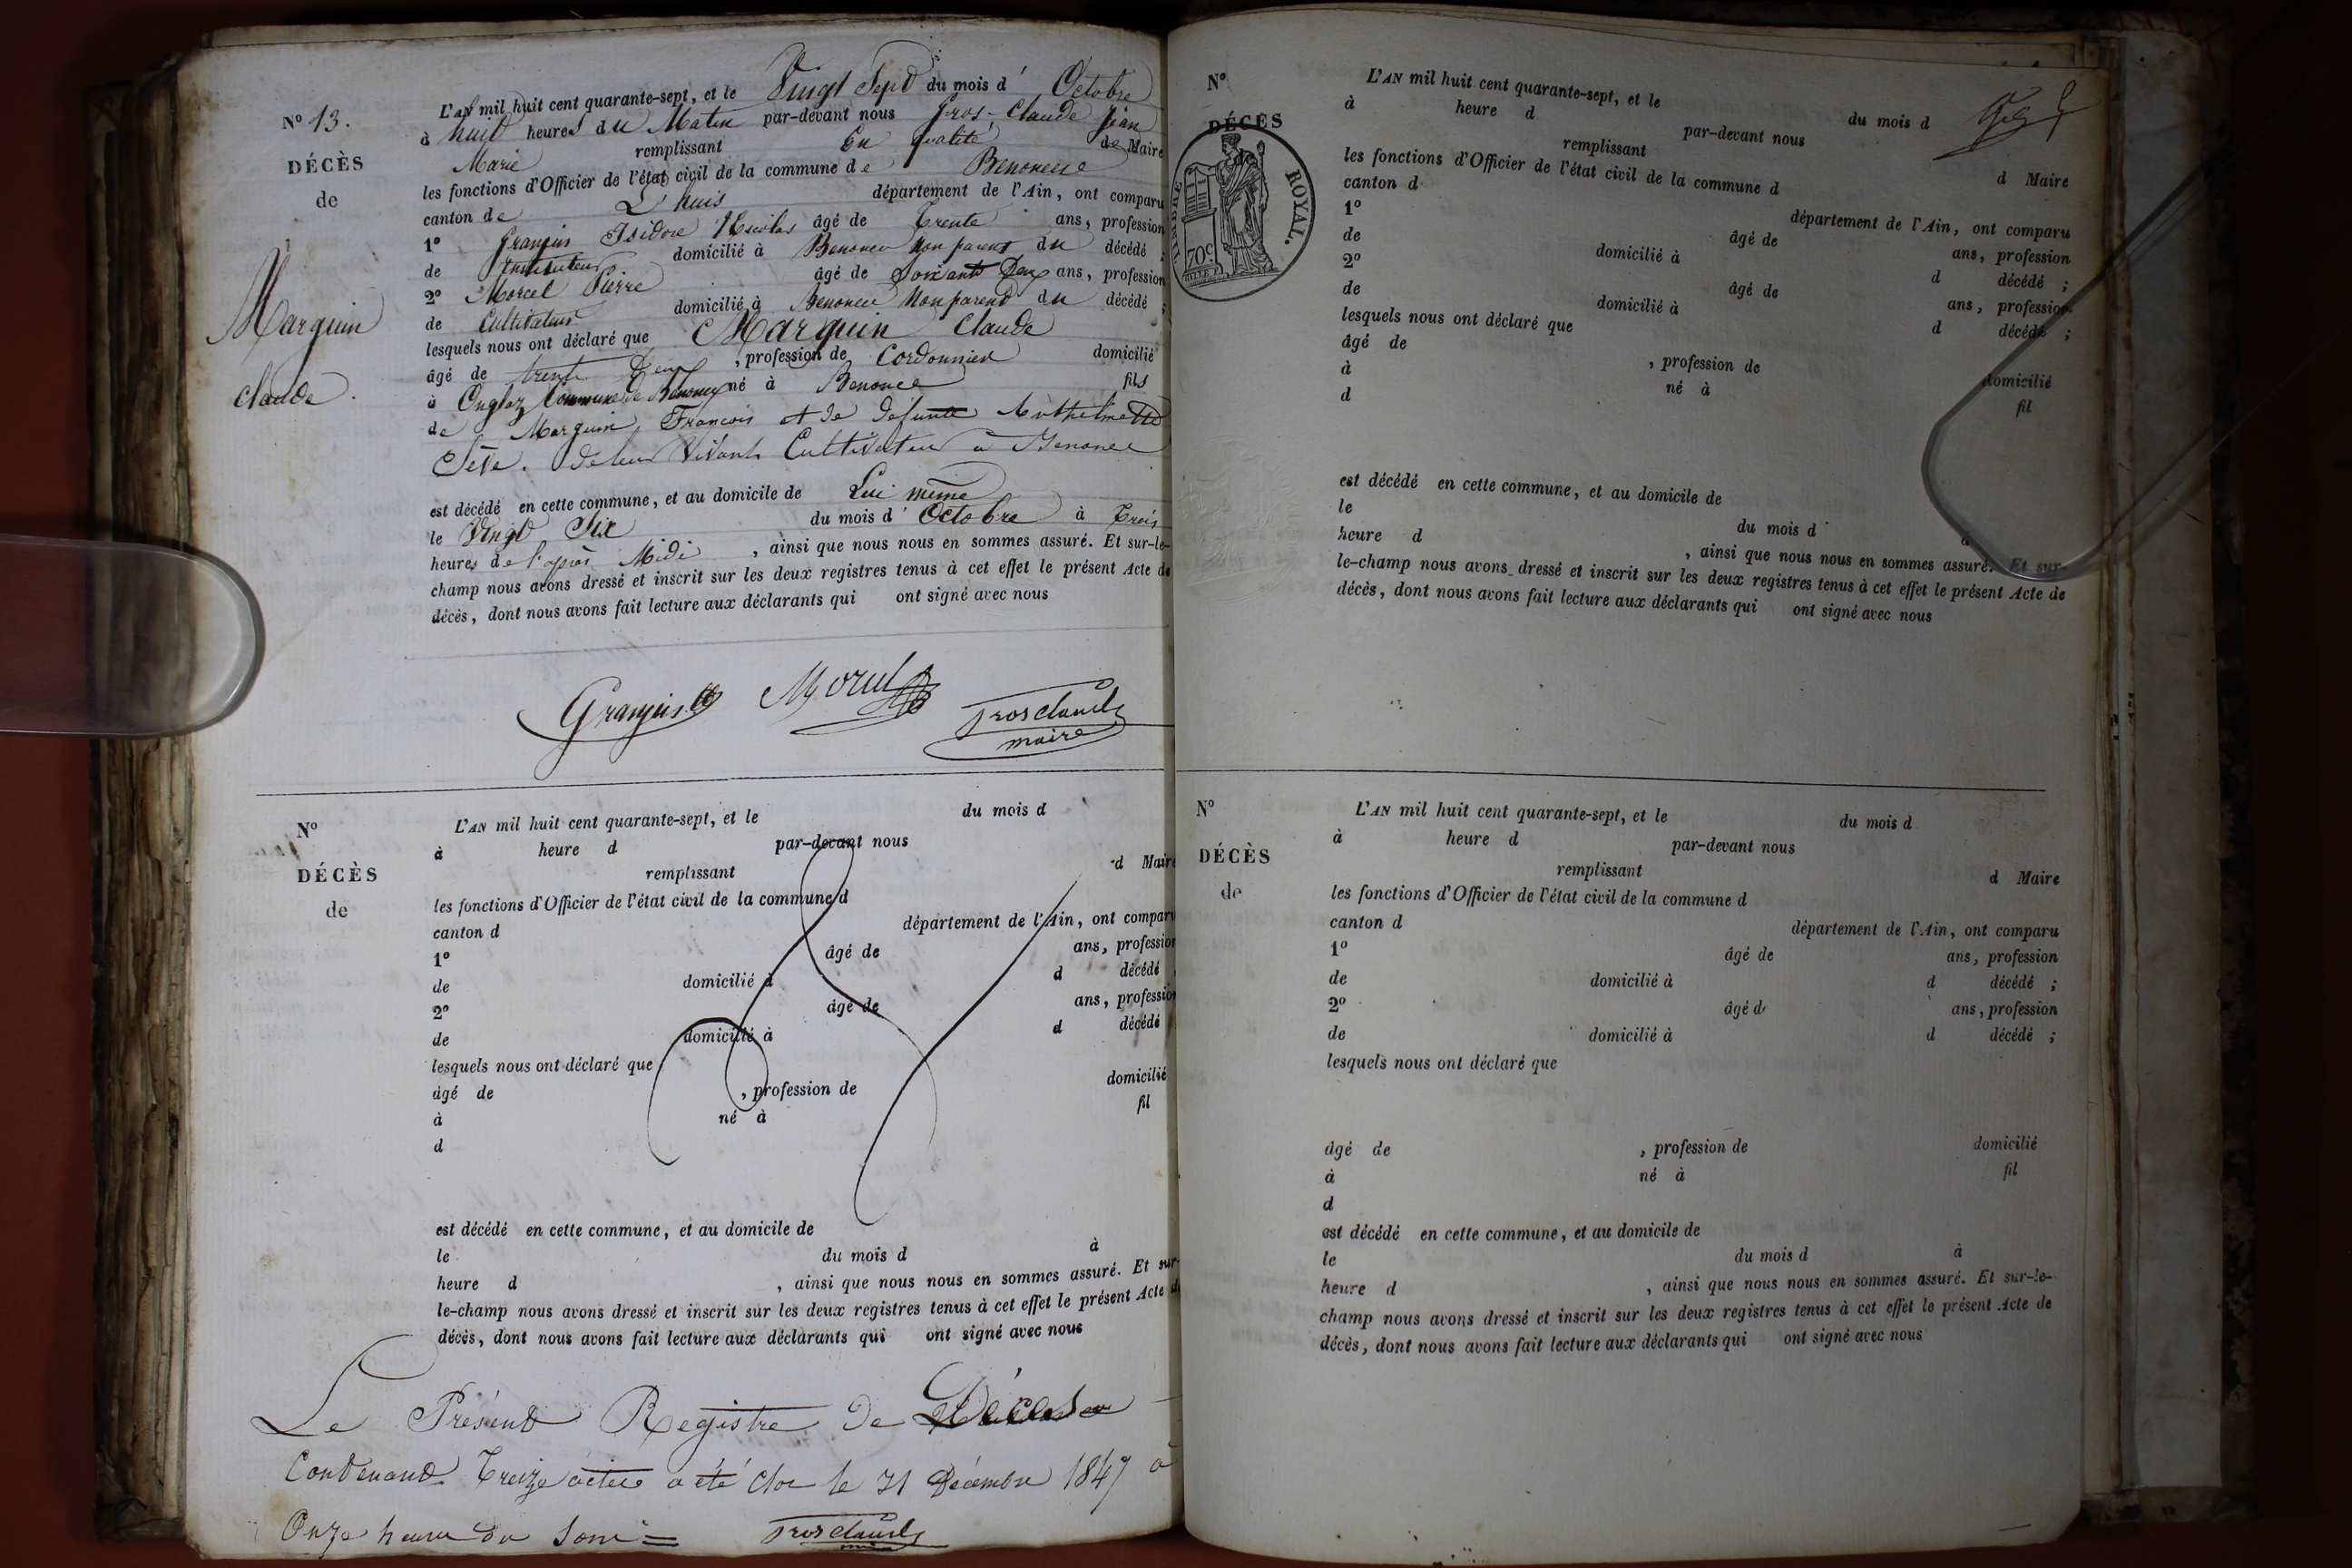 N° 13.
DÉCÈS
de
Marguin
Claude.
L'AN mil huit cent quarante-sept, et le Vingt Sept du mois d' Octobre
à huit heures du Matin par-devant nous Gros-Claude Jean
Marie remplissant En qualité de Maire
les fonctions d'Officier de l'état civil de la commune de Benonce
canton de L'huis département de l'Ain, ont comparu
1° Isidore Nicolas âgé de Trente ans, profession
de Instituteur domicilié à Benonce Non parent du décédé ;
2° Morcel Pierre âgé de Soixante Deux ans, profession
de Cultivateur domicilié à Benonce Non parent du décédé ;
lesquels nous ont déclaré que Marguin Claude
âgé de trente Deux , profession de Cordonnier domicilié
à Onglaz Commune de Benonce né à Benonce fils
de Marguin François et de defunte Anthelmette
Sève. de leur Vivant Cultivateur à Benonce
est décédé en cette commune, et au domicile de Lui même
le Vingt Six du mois d' Octobre à Trois
heures de l'après Midi , ainsi que nous nous en sommes assuré. Et sur-le-
champ nous avons dressé et inscrit sur les deux registres tenus à cet effet le présent Acte de
décès, dont nous avons fait lecture aux déclarants qui ont signé avec nous
Morcel
Grosclaude
maire
N°
DÉCÈS
de
L'AN mil huit cent quarante-sept, et le du mois d
à heure d par-devant nous
remplissant d Maire
les fonctions d'Officier de l'état civil de la commune d
canton d département de l'Ain, ont comparu
1° âgé de ans, profession
de domicilié à d décédé
2° âgé de ans, profession
de domicilié à d décédé
lesquels nous ont déclaré que
âgé de , profession de domicilié
à né à fil
d
est décédé en cette commune, et au domicile de
le du mois d à
heure d , ainsi que nous nous en sommes assuré. Et sur-
le-champ nous avons dressé et inscrit sur les deux registres tenus à cet effet le présent Acte d
décès, dont nous avons fait lecture aux déclarants qui ont signé avec nous
Le Présent Registre De Décès
Contenant Treize actes a été clos le 31 Décembre 1847 à
Onze heures du Soir =
Grosclaude
N°
DÉCÈS
TIMBRE ROYAL.
70c
L'AN mil huit cent quarante-sept, et le du mois d
à heure d par-devant nous
remplissant d Maire
les fonctions d'Officier de l'état civil de la commune d
canton d département de l'Ain, ont comparu
1° âgé de ans, profession
de domicilié à d décédé ;
2° âgé de ans, profession
de domicilié à d décédé ;
lesquels nous ont déclaré que
âgé de , profession de domicilié
à né à fil
d
est décédé en cette commune, et au domicile de
le du mois d à
heure d , ainsi que nous nous en sommes assuré. Et sur-
le-champ nous avons dressé et inscrit sur les deux registres tenus à cet effet le présent Acte de
décès, dont nous avons fait lecture aux déclarants qui ont signé avec nous
N°
DÉCÈS
de
L'AN mil huit cent quarante-sept, et le du mois d
à heure d par-devant nous
remplissant d Maire
les fonctions d'Officier de l'état civil de la commune d
canton d département de l'Ain, ont comparu
1° âgé de ans, profession
de domicilié à d décédé ;
2° âgé de ans, profession
de domicilié à d décédé ;
lesquels nous ont déclaré que
âgé de , profession de domicilié
à né à fil
d
est décédé en cette commune, et au domicile de
le du mois d à
heure d , ainsi que nous nous en sommes assuré. Et sur-le-
champ nous avons dressé et inscrit sur les deux registres tenus à cet effet le présent Acte de
décès, dont nous avons fait lecture aux déclarants qui ont signé avec nous